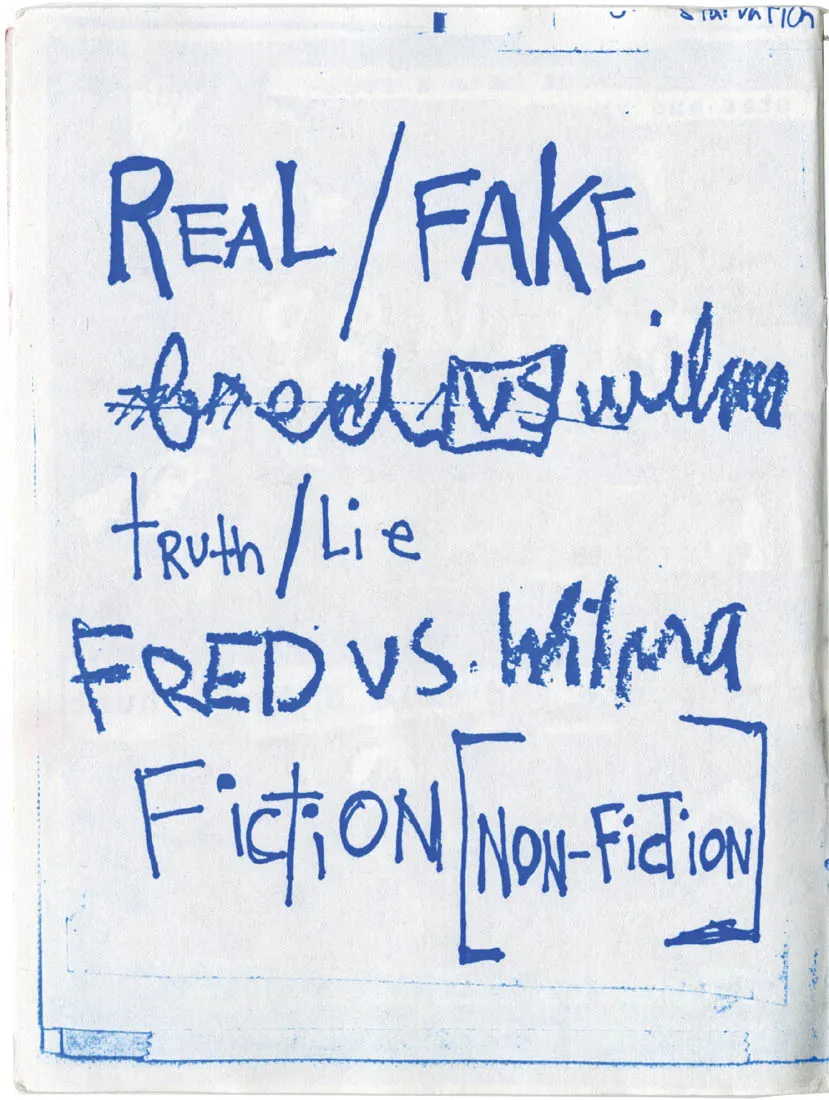 starvation
REAL / FAKE
fred vs wilma
tRuth / Lie
FRED VS. Wilma
FictiON [NON-FictiON]